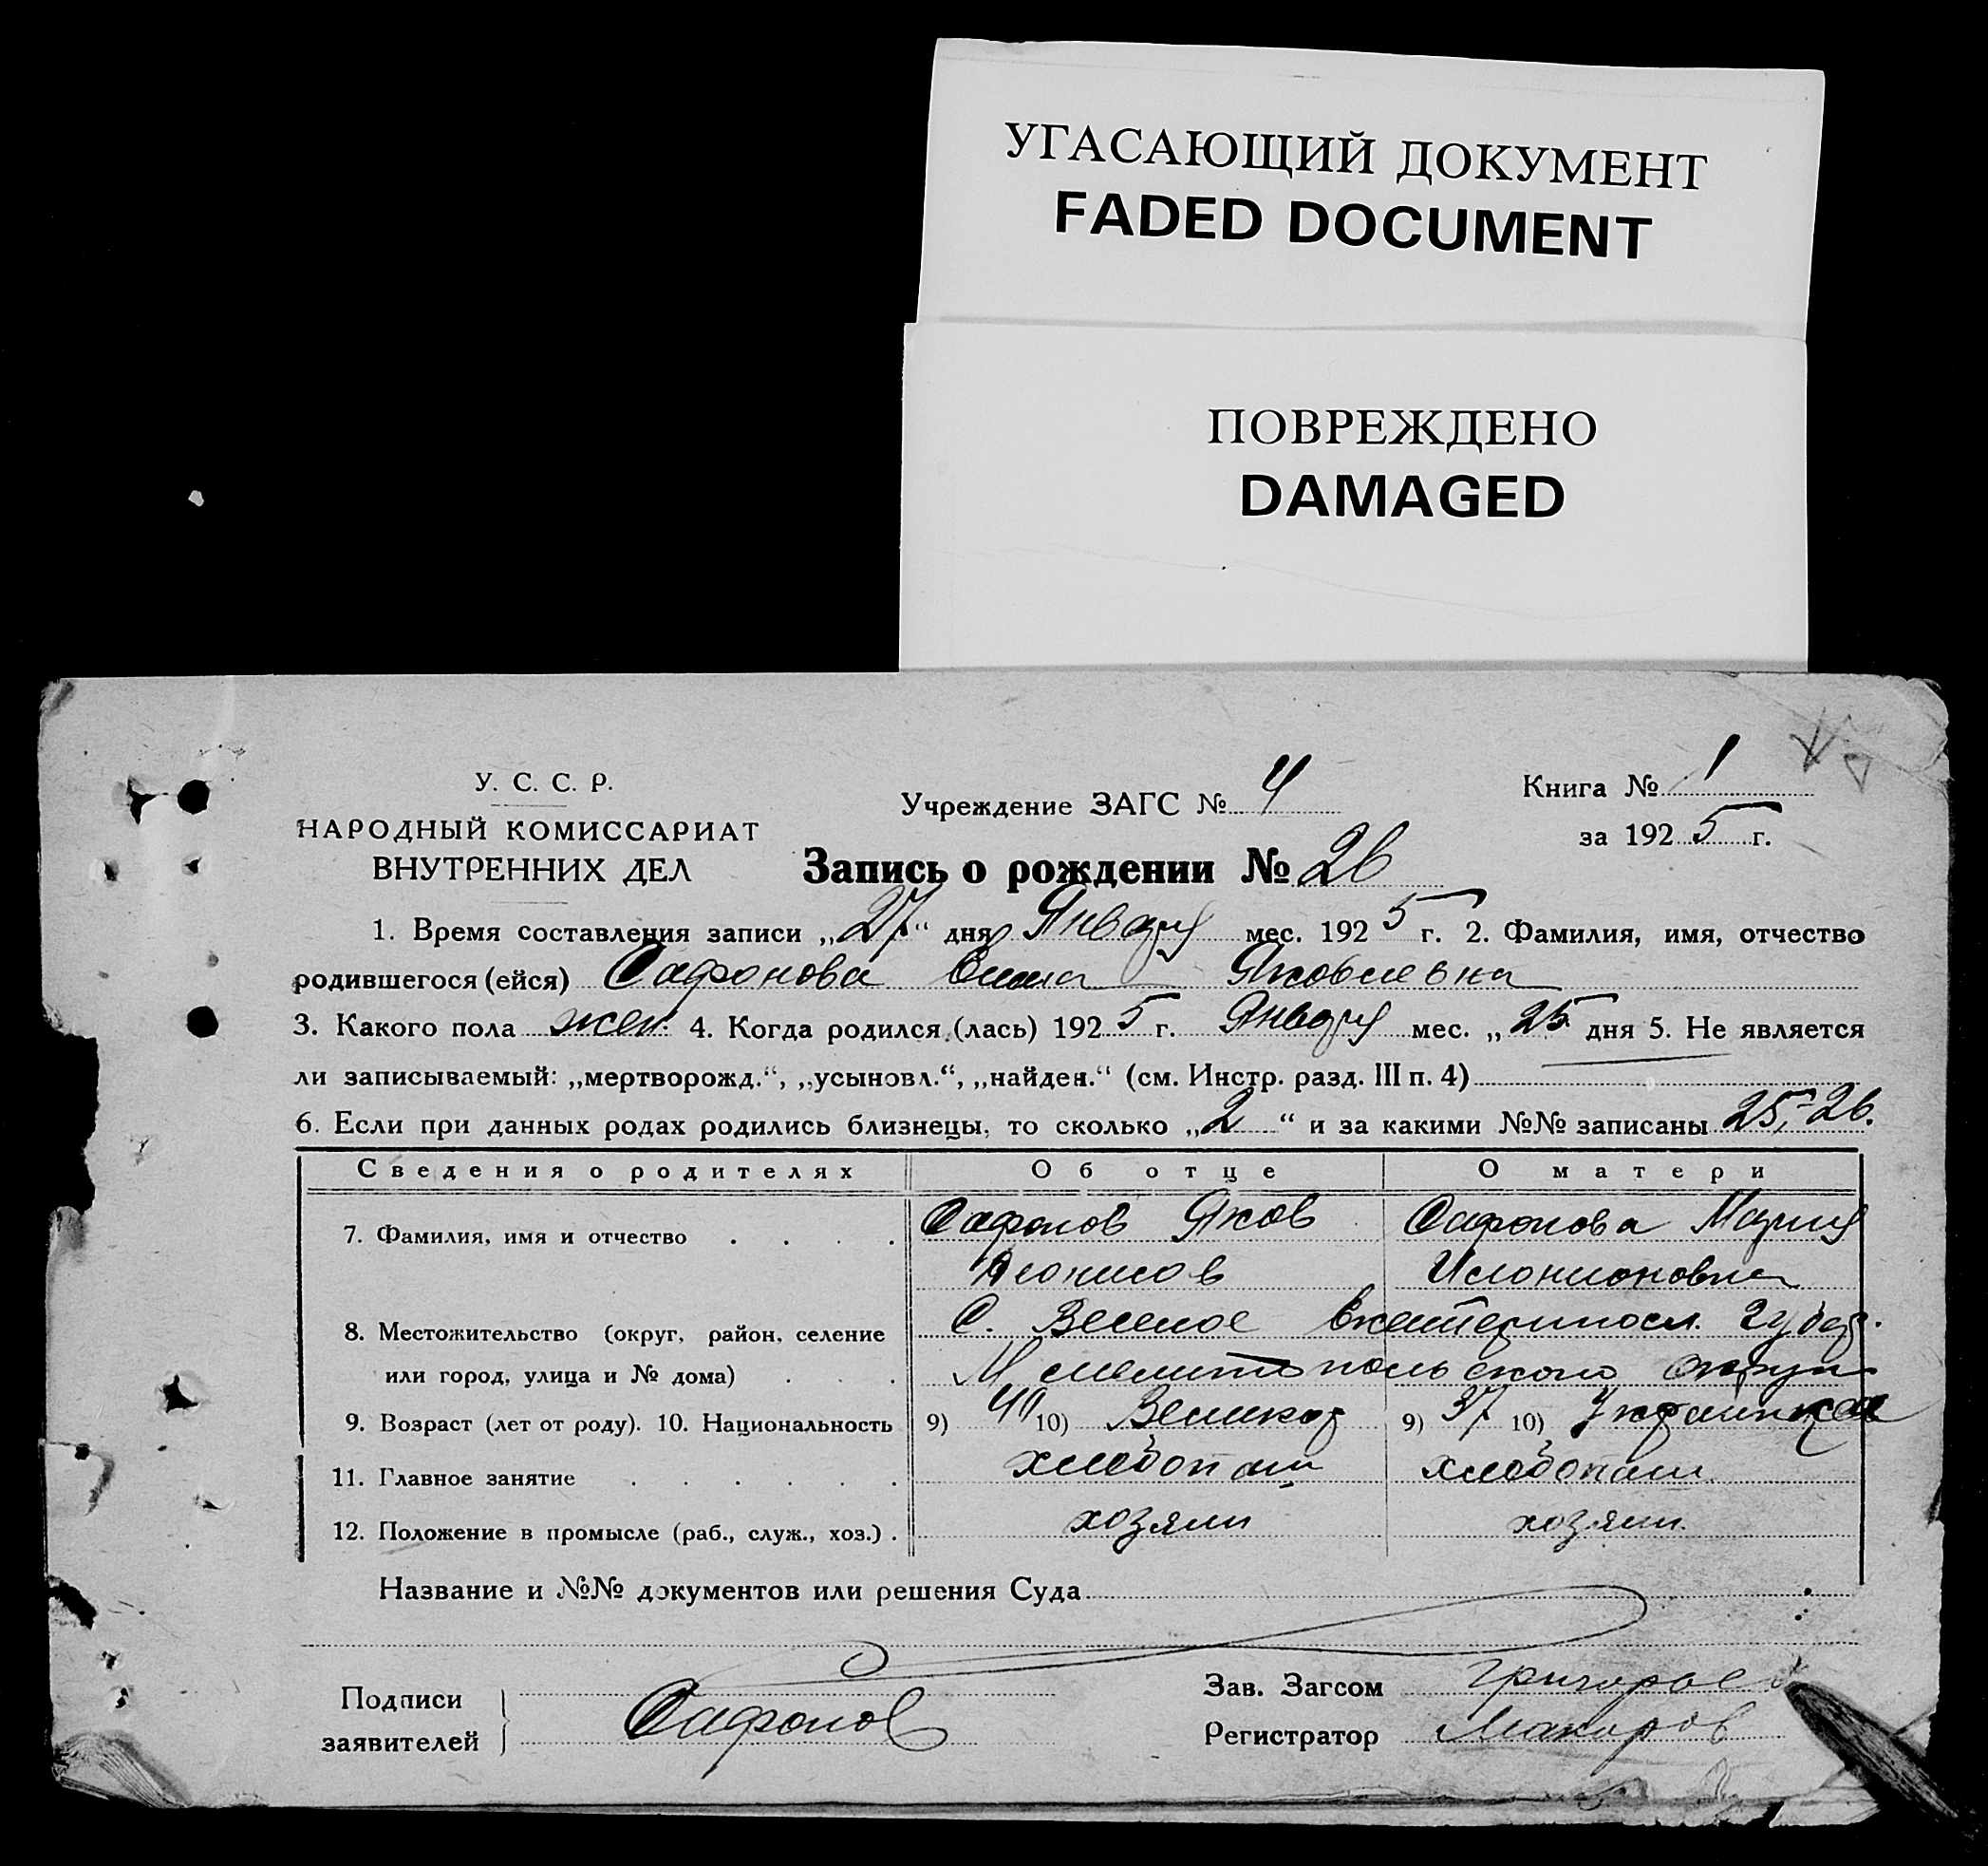 УГАСАЮЩИЙ ДОКУМЕНТ
FADED DOCUMENT
ПОВРЕЖДЕНО
DAMAGED
У. С. С. Р.
НАРОДНЫЙ КОМИССАРИАТ
ВНУТРЕННИХ ДЕЛ
Учреждение ЗАГС № 4
Книга № 1
за 1925 г.
Запись о рождении № 26
1. Время составления записи „27“ дня Января мес. 1925 г. 2. Фамилия, имя, отчество
родившегося (ейся) Сафонова Яковлевна
3. Какого пола жен. 4. Когда родился (лась) 1925 г. Января мес. „25 дня 5. Не является
ли записываемый: „мертворожд.“, „усыновл.“, „найден.“ (см. Инстр. разд. III п. 4)
6. Если при данных родах родились близнецы, то сколько „2“ и за какими №№ записаны 25,-26.
Сведения о родителях Об отце О матери
7. Фамилия, имя и отчество Сафонов Яков Сафонова Мария
8. Местожительство (округ, район, селение С. Веселое Екатериносл. губер.
или город, улица и № дома)
9. Возраст (лет от роду). 10. Национальность 9) 40 10) Великор 9) 37 10) Украинка
11. Главное занятие хлебопаш хлебопаш
12. Положение в промысле (раб., служ., хоз.) хозяин хозяин.
Название и №№ документов или решения Суда
Подписи заявителей Сафонов
Зав. Загсом Григорьев
Регистратор